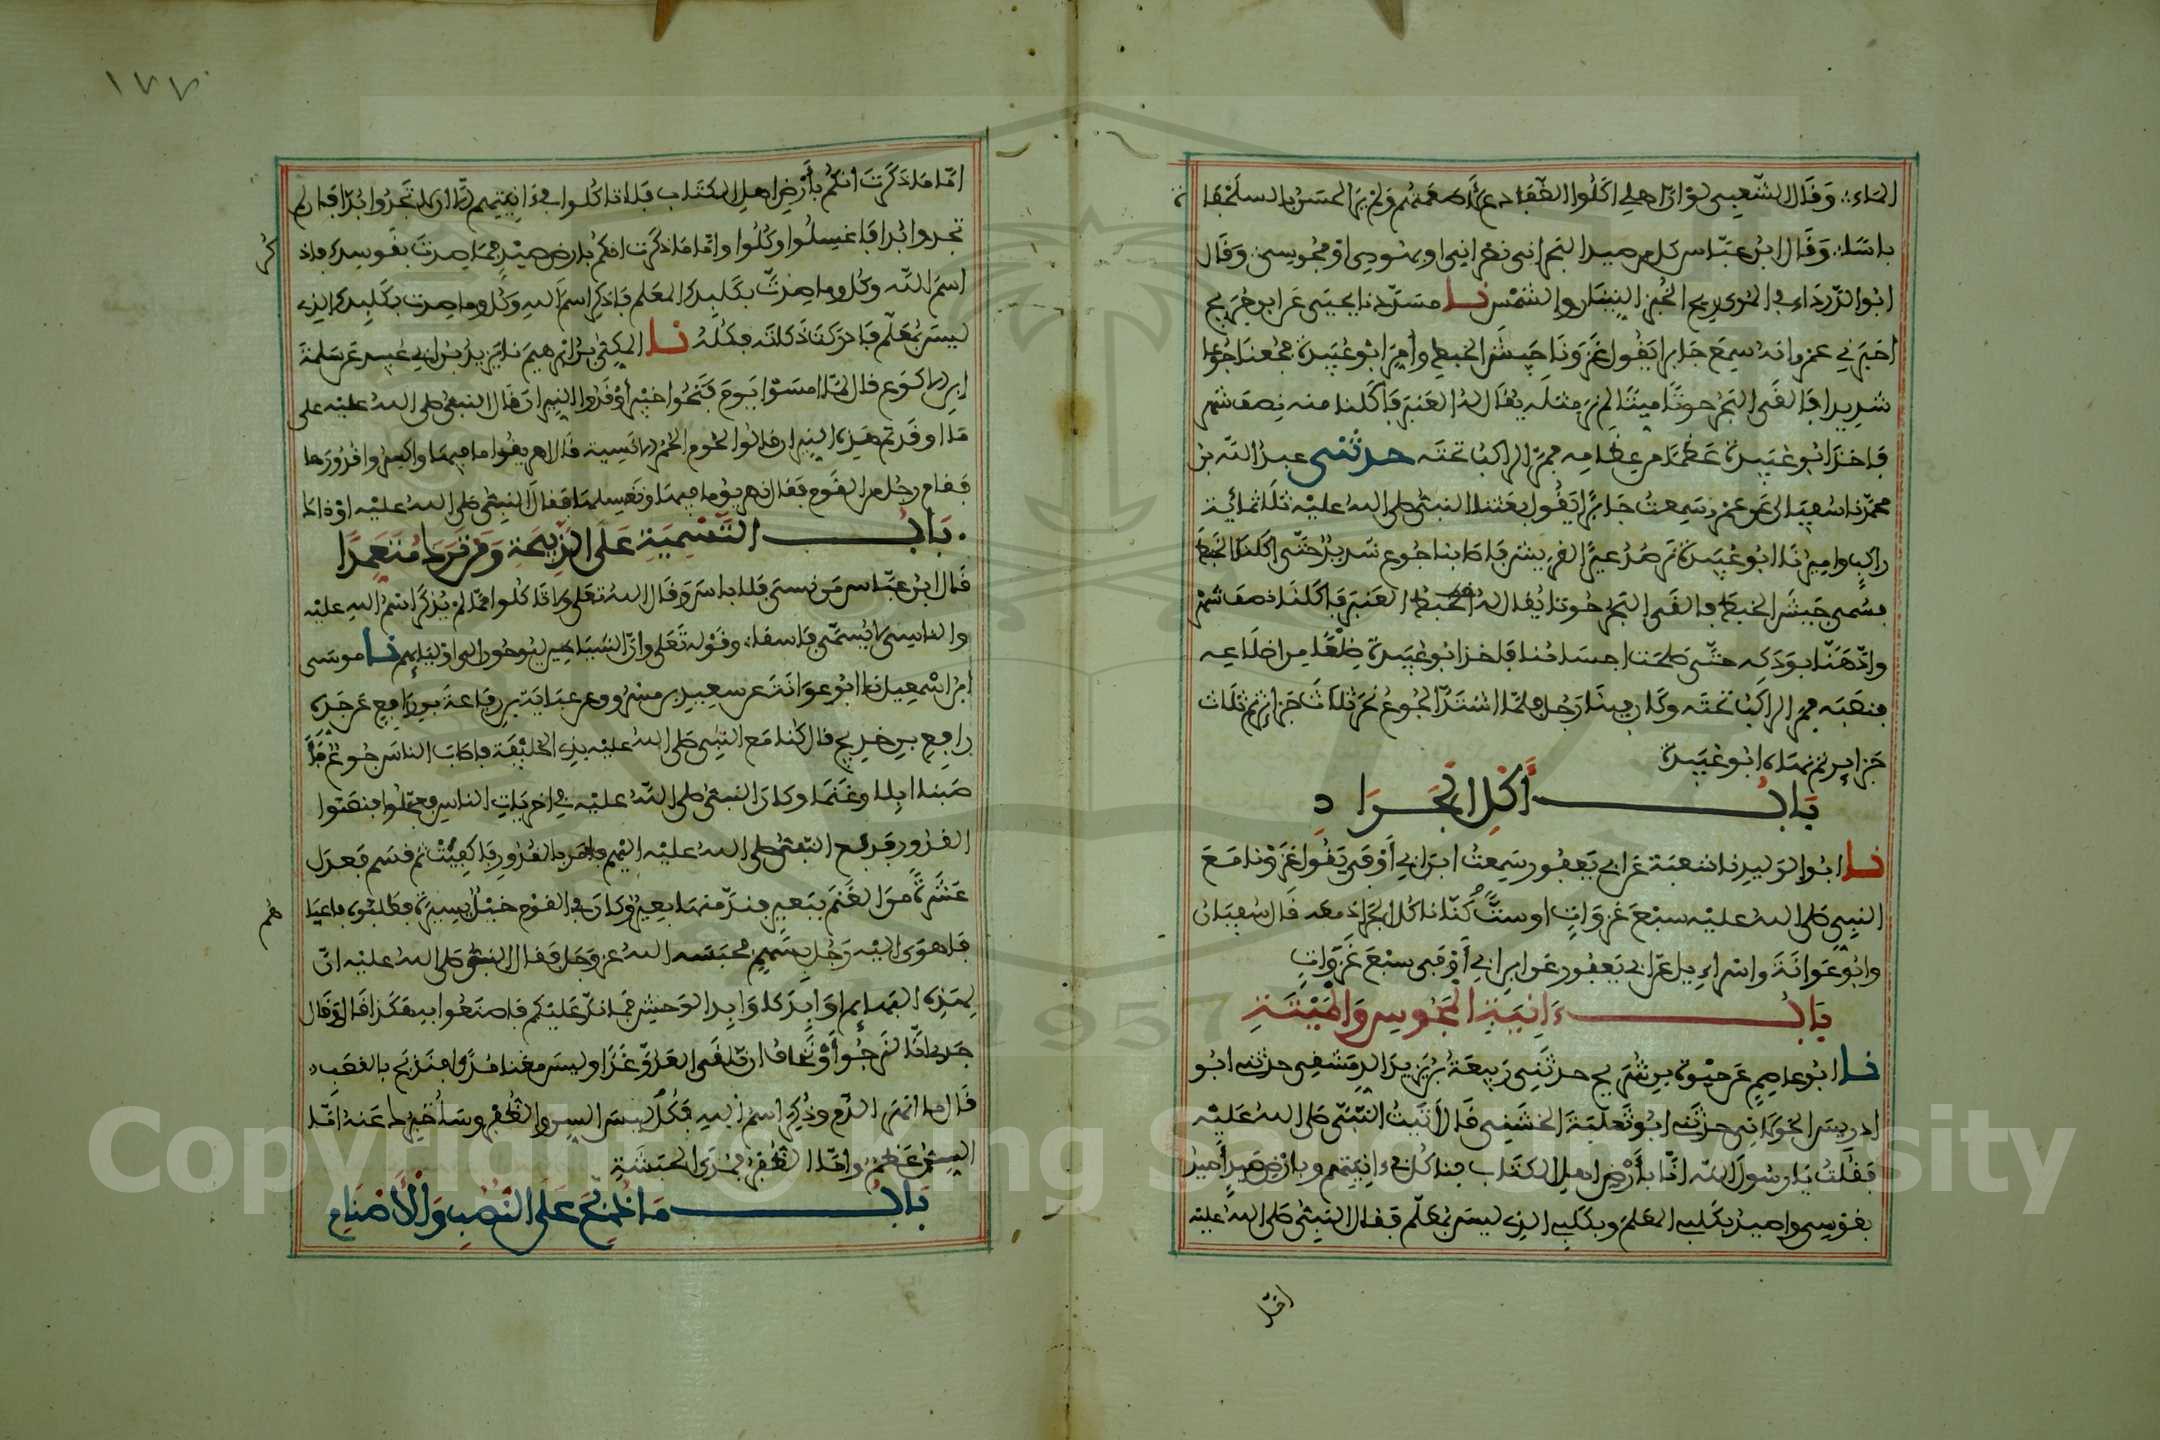 الماء وقال الشعبي لو ان اهلي اكلوا الضفادع لأطعمتهم ولم ير الحسن بالسلحفاة
باسا وقال ابن عباس كل من صيد البحر نصراني او يهودي او مجوسي وقال
ابو الدرداء في المري ذبح الخمر النينان والشمس نا مسدد نا يحيى عن ابن جريج
اخبرني عمرو انه سمع جابرا يقول غزونا جيش الخبط وأمر ابو عبيدة فجعنا جوعا
شديدا فالقى البحر حوتا ميتا لم نر مثله يقال له العنبر فاكلنا منه نصف شهر
فاخذ ابو عبيدة عظما من عظامه فمر الراكب تحته حدثني عبد الله بن
محمد نا سفيان عن عمرو سمعت جابرا يقول بعثنا النبي صلى الله عليه ثلاثمائة
راكب واميرنا ابو عبيدة نرصد عير القريش فاصابنا جوع شديد حتى اكلنا الخبط
فسمي جيش الخبط فالقى البحر حوتا يقال له العنبر فاكلنا نصف شهر
وادهنا بودكه حتى صلحت اجسامنا فاخذ ابو عبيدة ضلعا من اضلاعه
فنصبه فمر الراكب تحته وكان فينا رجل فلما اشتد الجوع نحر ثلاث جزائر ثم ثلاث
جزائر ثم نهاه ابو عبيدة
باب أكل الجراد
نا ابو الوليد نا شعبة عن ابي يعفور سمعت ابن ابي أوفى يقول غزونا مع
النبي صلى الله عليه سبع غزوات او ستا كنا ناكل الجراد معه قال سفيان
وابو عوانة واسراءيل عن ابي يعفور عن ابن ابي أوفى سبع غزوات
باب ءانية المجوس والميتة
نا ابو عاصم عن حيوة بن شريح حدثني ربيعة بن يزيد الدمشقي حدثني ابو
ادريس الخولاني حدثني ابو ثعلبة الخشني قال أتيت النبي صلى الله عليه
فقلت يا رسول الله انا بأرض اهل الكتاب فناكل في ءانيتهم وبارض صيد أصيد
بقوسي واصيد بكلبي المعلم وبكلبي الذي ليس بمعلم فقال النبي صلى الله عليه
اما
١٧٧
اما ما ذكرت انكم بأرض اهل الكتاب فلا تاكلوا في ءانيتهم الا ان لا تجدوا بدا فان لم
تجدوا بدا فاغسلوا وكلوا واما ما ذكرت انكم بارض صيد فما صدت بقوسك فاذكر
اسم الله وكل وما صدت بكلبك المعلم فاذكر اسم الله وكل وما صدت بكلبك الذي
ليس بمعلم فادركت ذكاته فكله نا المكي بن ابرهيم نا يزيد بن ابي عبيد عن سلمة
ابن الاكوع قال لما امسوا يوم فتحوا خيبر أوقدوا النيران قال النبي صلى الله عليه على
ما اوقدتم هذه النيران قالوا لحوم الحمر الانسية قال اهريقوا ما فيها واكسروا قدورها
فقام رجل من القوم فقال نهريق ما فيها ونغسلها فقال النبي صلى الله عليه او ذاك
باب التسمية على الذبيحة ومن ترك متعمدا
قال ابن عباس من نسي فلا باس وقال الله تعلى ولا تاكلوا مما لم يذكر اسم الله عليه
والناسي لا يسمى فاسقا وقوله تعلى وان الشياطين ليوحون الى اوليائهم نا موسى
ابن اسمعيل نا ابو عوانة عن سعيد بن مسروق عن عباية بن رفاعة بن رافع عن جده
رافع بن خديج قال كنا مع النبي صلى الله عليه بذي الحليفة فاصاب الناس جوع
صبنا ابلا وغنما وكان النبي صلى الله عليه في اخريات الناس فعجلوا فنصبوا
القدور فدفع النبي صلى الله عليه اليهم فامر بالقدور فاكفئت ثم قسم فعدل
عشرة من الغنم ببعير فند منها بعير وكان في القوم خيل يسيرة فطلبوه فاعياهم
فاهوى اليه رجل بسهم فحبسه الله عز وجل فقال النبي صلى الله عليه ان
لهذه البهائم اوابد كاوابد الوحش فما ند عليكم فاصنعوا به هكذا قال وقال
جدي انا لنرجوا أو نخاف ان نلقى العدو غدا وليس معنا مدى افنذبح بالقصب
قال ما انهر الدم وذكر اسم الله فكل ليس السن والظفر وساخبركم عنه اما
السن عظم واما الظفر فمدى الحبشة
باب ما ذبح على النصب والأصنام
Copyright © King Saud University
1957